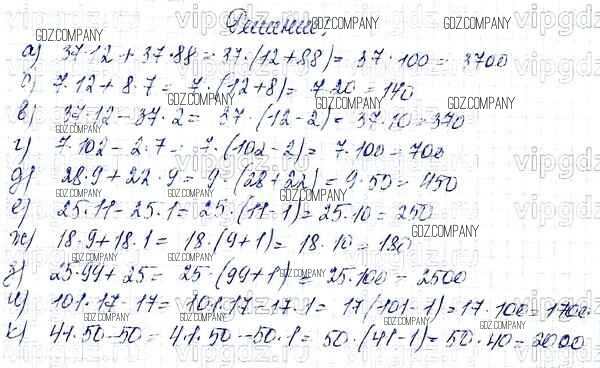 Решение:
а) 37·12 + 37·88 = 37·(12+88) = 37·100 = 3700
б) 7·12 + 8·7 = 7·(12+8) = 7·20 = 140
в) 37·12 - 37·2 = 37·(12-2) = 37·10 = 370
г) 7·102 - 2·7 = 7·(102-2) = 7·100 = 700
д) 28·9 + 22·9 = 9·(28+22) = 9·50 = 450
е) 25·11 - 25·1 = 25·(11-1) = 25·10 = 250
ж) 18·9 + 18·1 = 18·(9+1) = 18·10 = 180
з) 25·99 + 25 = 25·(99+1) = 25·100 = 2500
и) 101·17 - 17 = 101·17 - 17·1 = 17(101-1) = 17·100 = 1700
к) 41·50 - 50 = 41·50 - 50·1 = 50·(41-1) = 50·40 = 2000